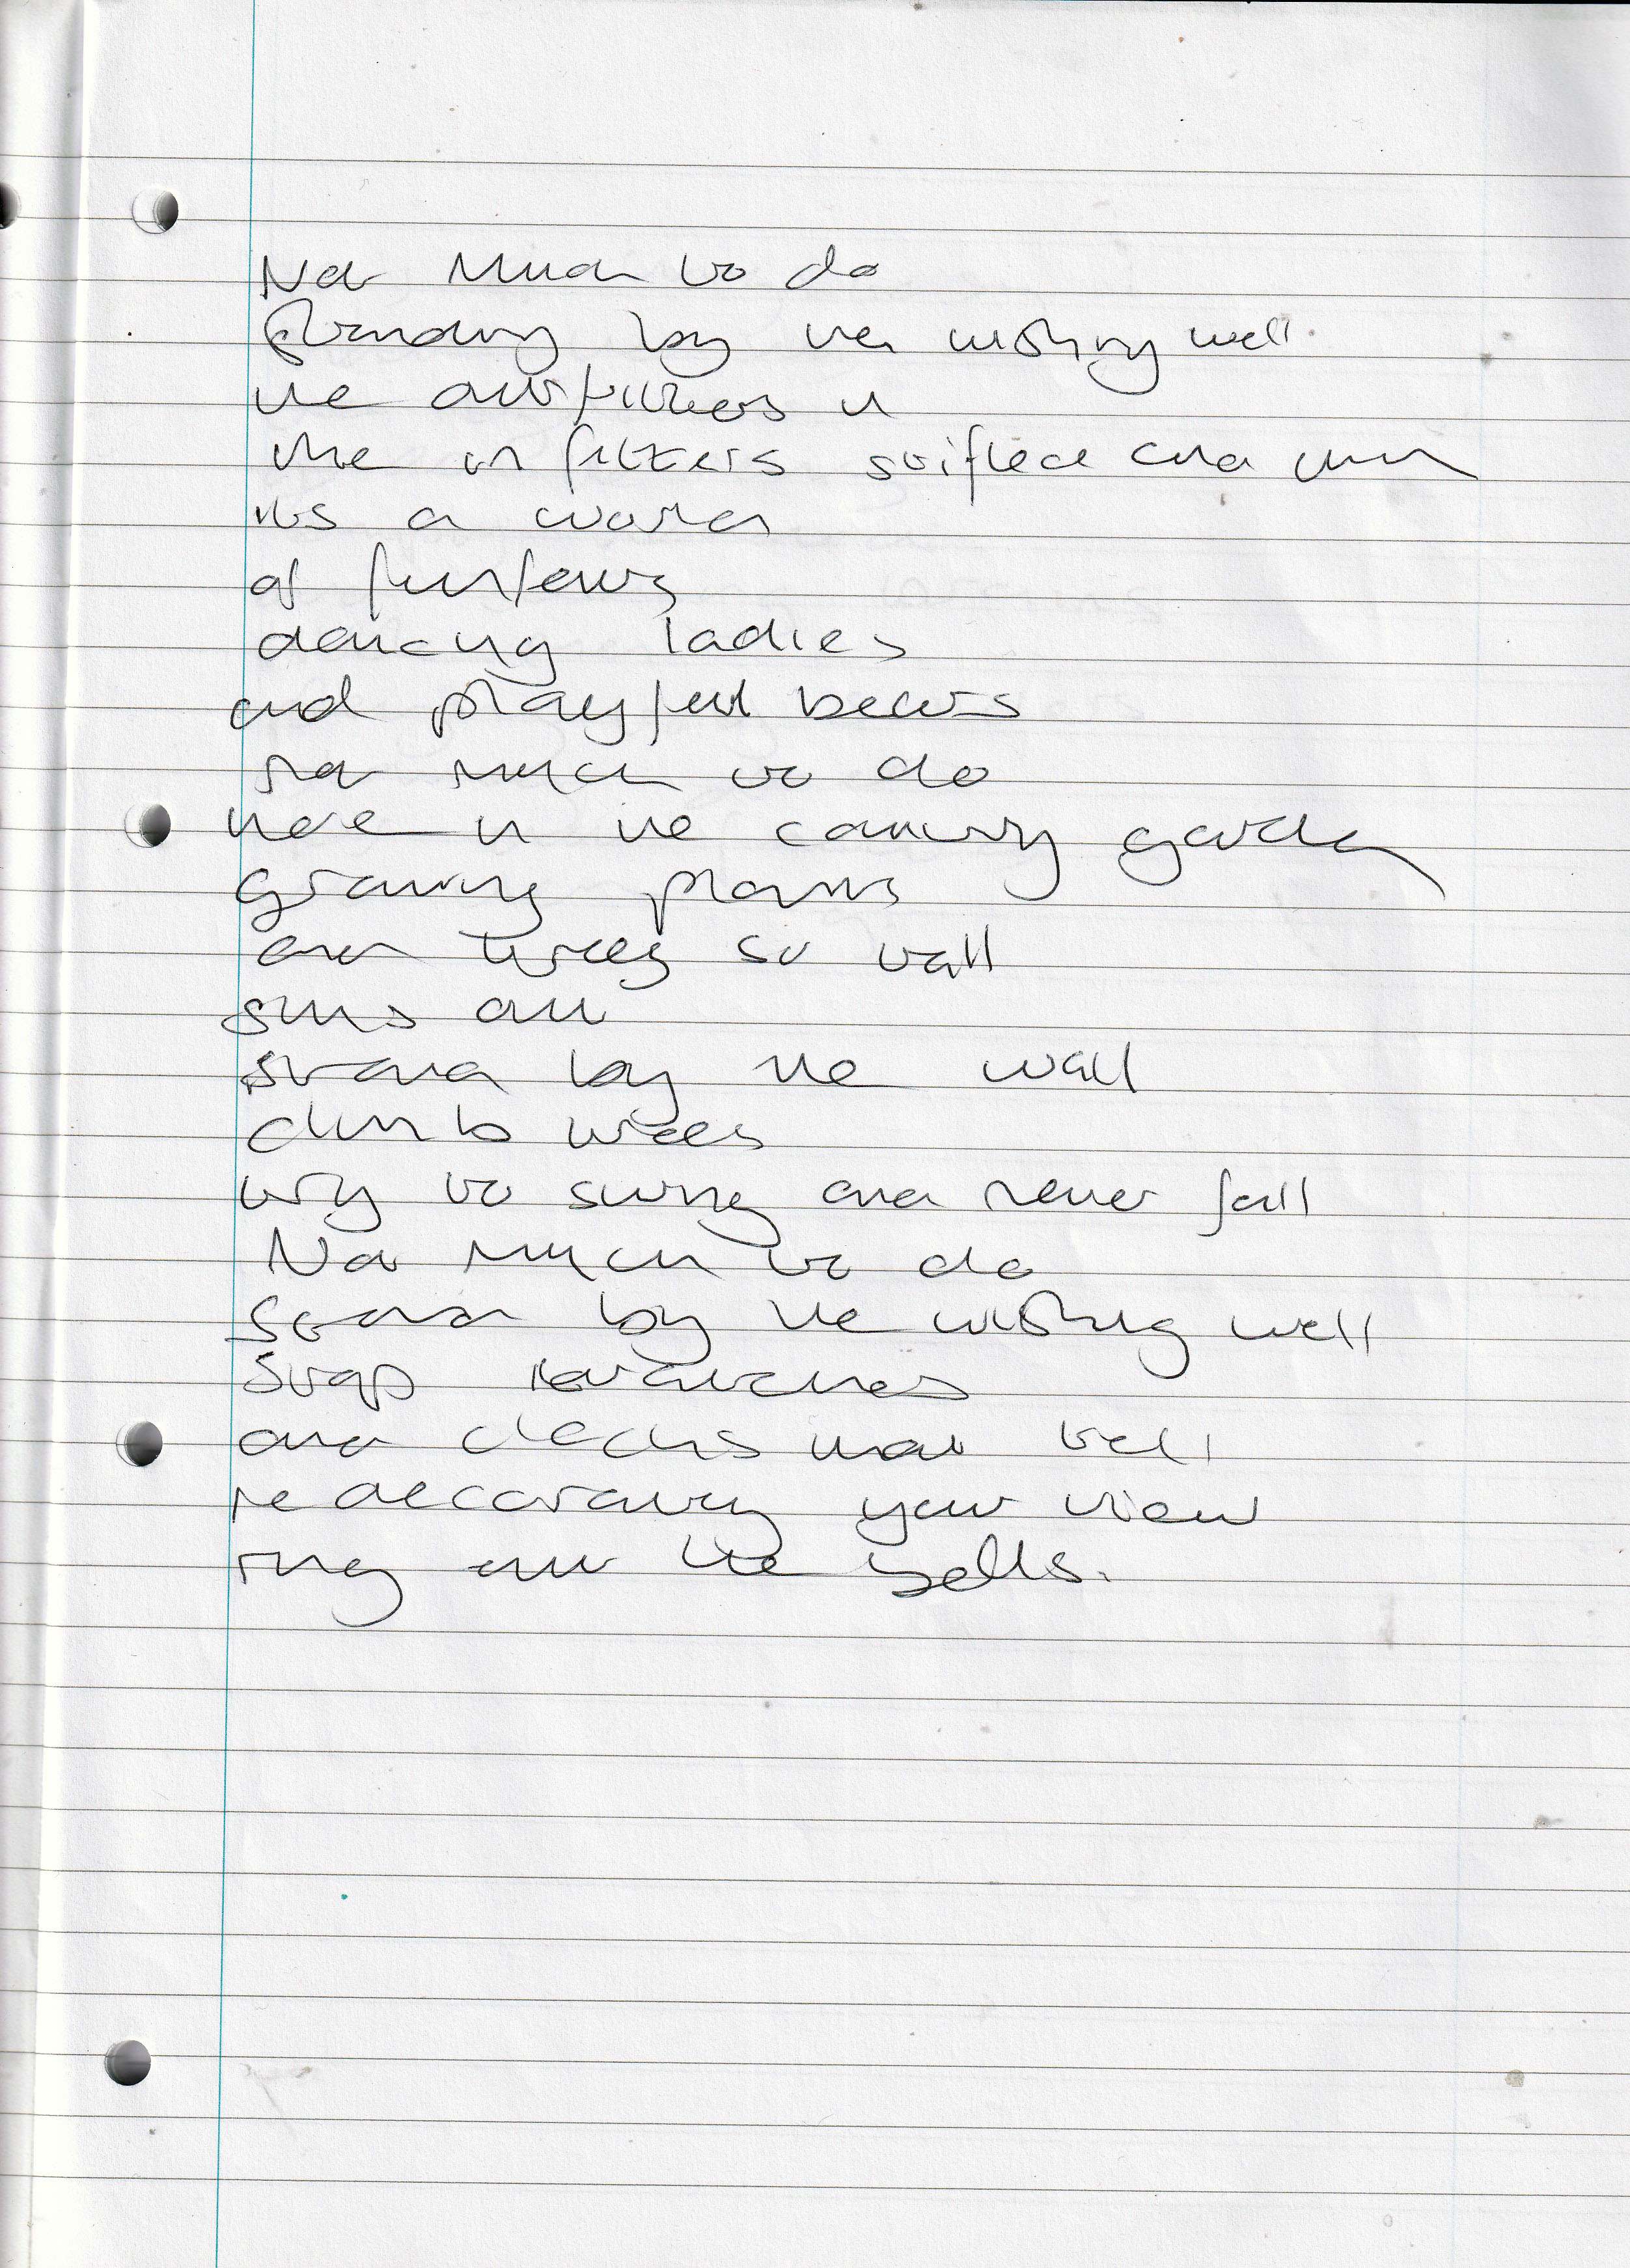 Not much to do
standing by the wishing well
the outfitters in
the infitters stifled and
its a world
of funfairs
dancing ladies
and playful bears
not much to do
here in the country garden
growing plants
and trees so tall
suns out
stand by the wall
climb trees
try to swing and never fall
Not much to do
stand by the wishing well
stop watches
and clocks that tell
redecorating your view
ring out the bells.